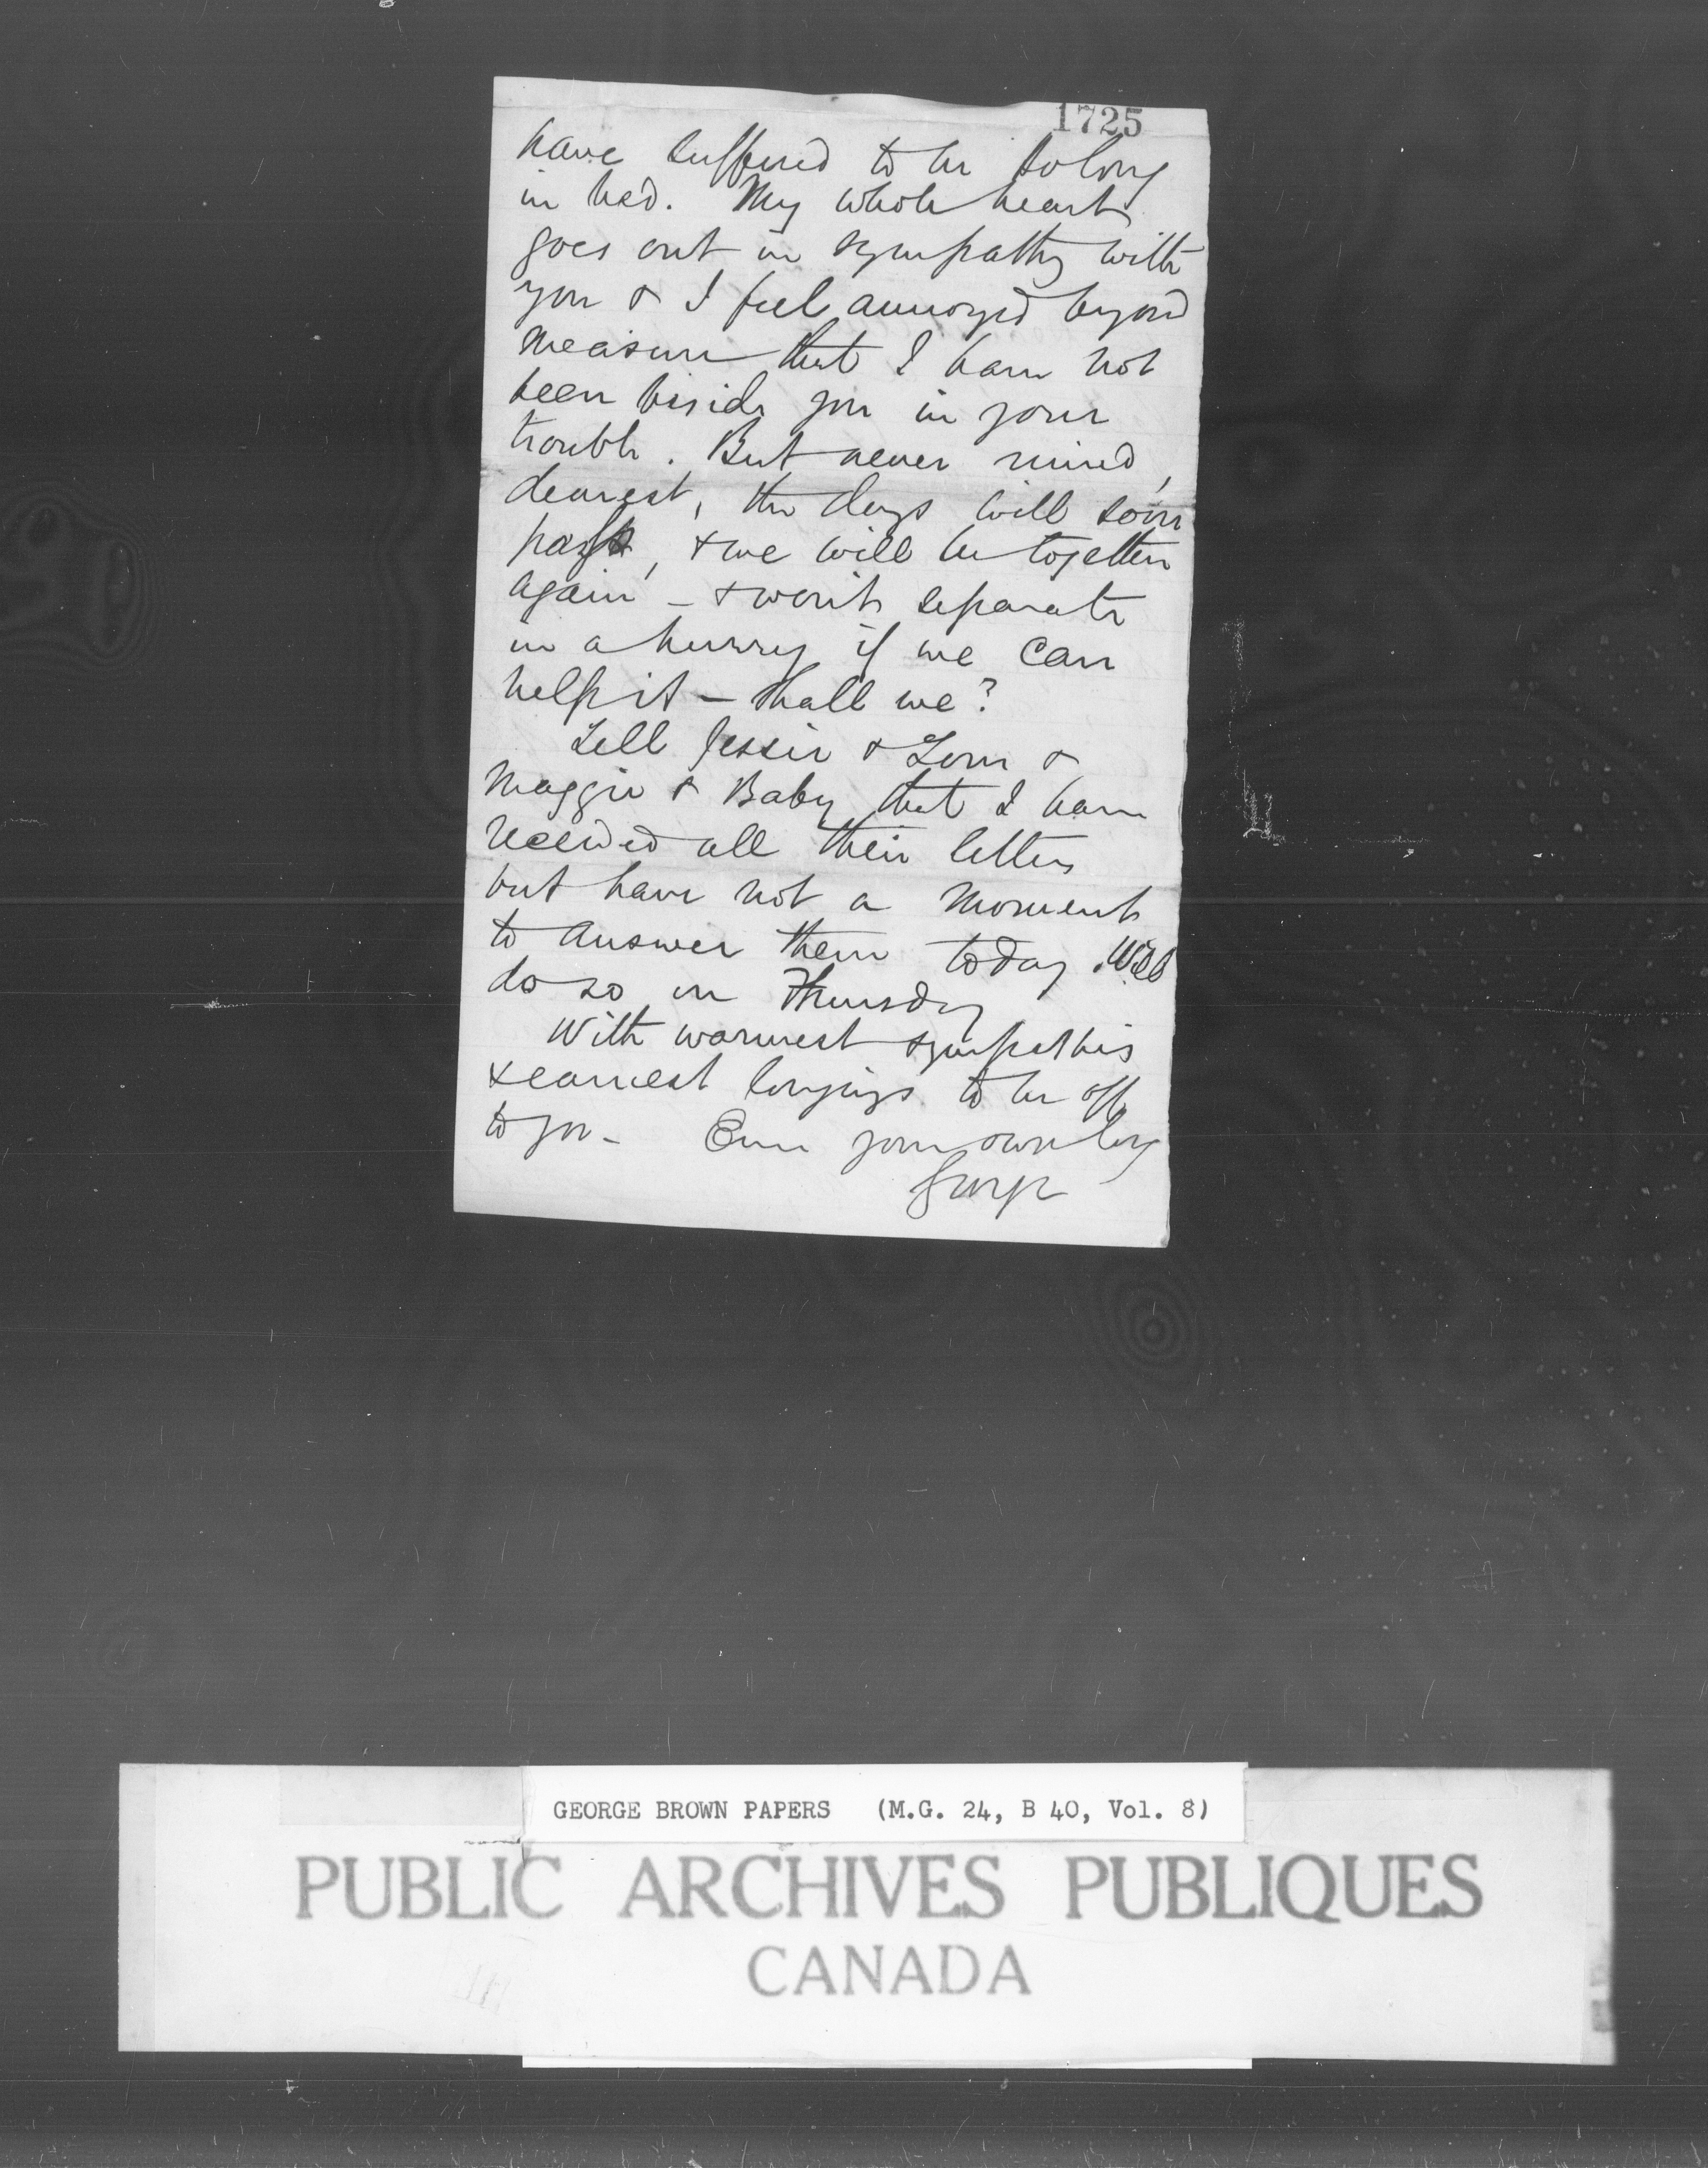 1725
have suffered to be so long
in bed. My whole heart
goes out in sympathy with
you & I feel annoyed beyond
measure that I have not
been beside you in your
trouble. But never mind,
dearest, the days will soon
pass, & we will be together
again - & won't separate
in a hurry if we can
help it - shall we?
Tell Jessie & Tom &
Maggie & Baby that I have
received all their letters
but have not a moment
to answer them today. Will
do so on Thursday
With warmest sympathies
& earnest longings to be off
to you - Ever your own loving
George
GEORGE BROWN PAPERS (M.G. 24, B 40, Vol. 8)
PUBLIC ARCHIVES PUBLIQUES
CANADA